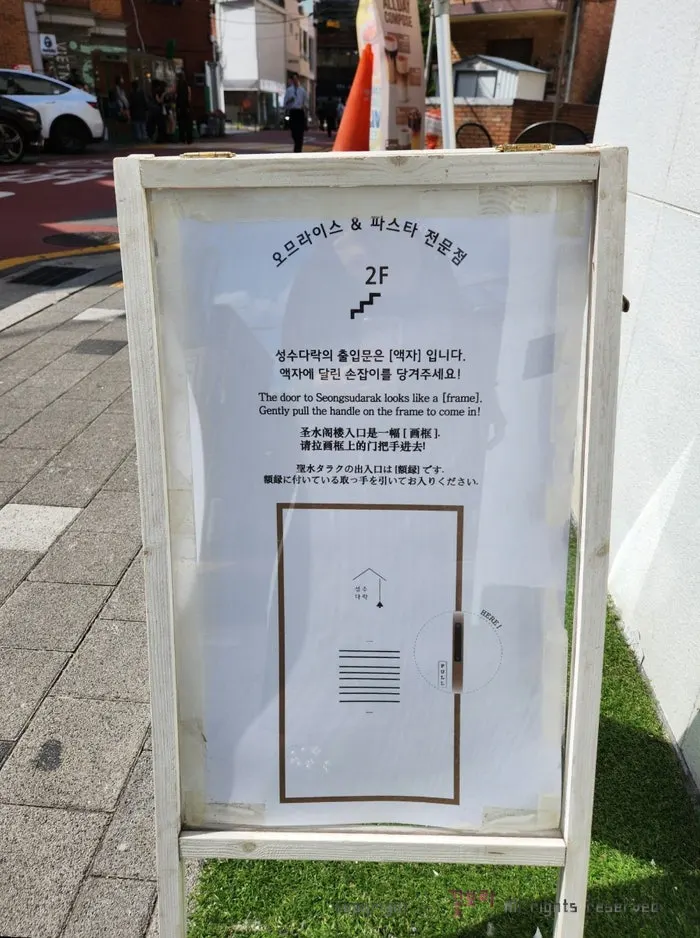 ALLDAY
COMPOSE
오므라이스 & 파스타 전문점
2F
성수다락의 출입문은 [액자] 입니다.
액자에 달린 손잡이를 당겨주세요!
The door to Seongsudarak looks like a [frame].
Gently pull the handle on the frame to come in!
圣水阁楼入口是一幅 [ 画框 ].
请拉画框上的门把手进去!
聖水タラクの出入口は [額縁] です.
額縁に付いている取っ手を引いてお入りください.
성수
다락
HERE!
PULL
All rights reserved